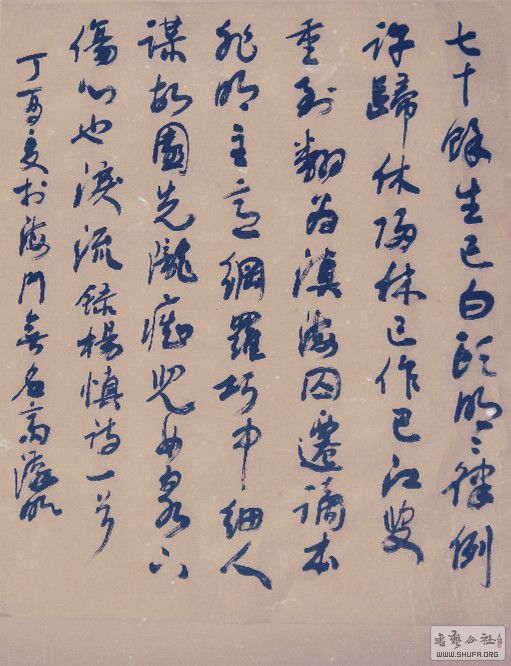 七十餘生已白頭明々律例
許歸休歸休已作巴江叟
重到翻為滇海囚遷謫本
非明主意網羅巧中細人
謀故園先隴癡兒女泉下
傷心也淚流錄楊慎詩一首
丁酉夏於海門
WWW.SHUFA.ORG